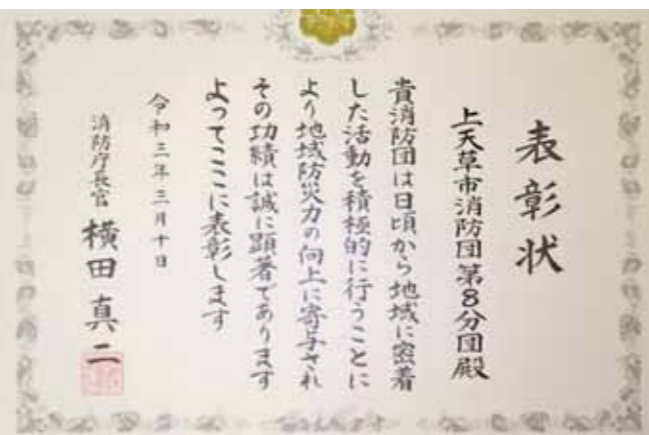 表彰状
上天草市消防団第8分団殿
貴消防団は日頃から地域に密着
した活動を積極的に行うことに
より地域防災力の向上に寄与され
その功績は誠に顕著であります
よってここに表彰します
令和三年三月十日
消防庁長官 横田真二